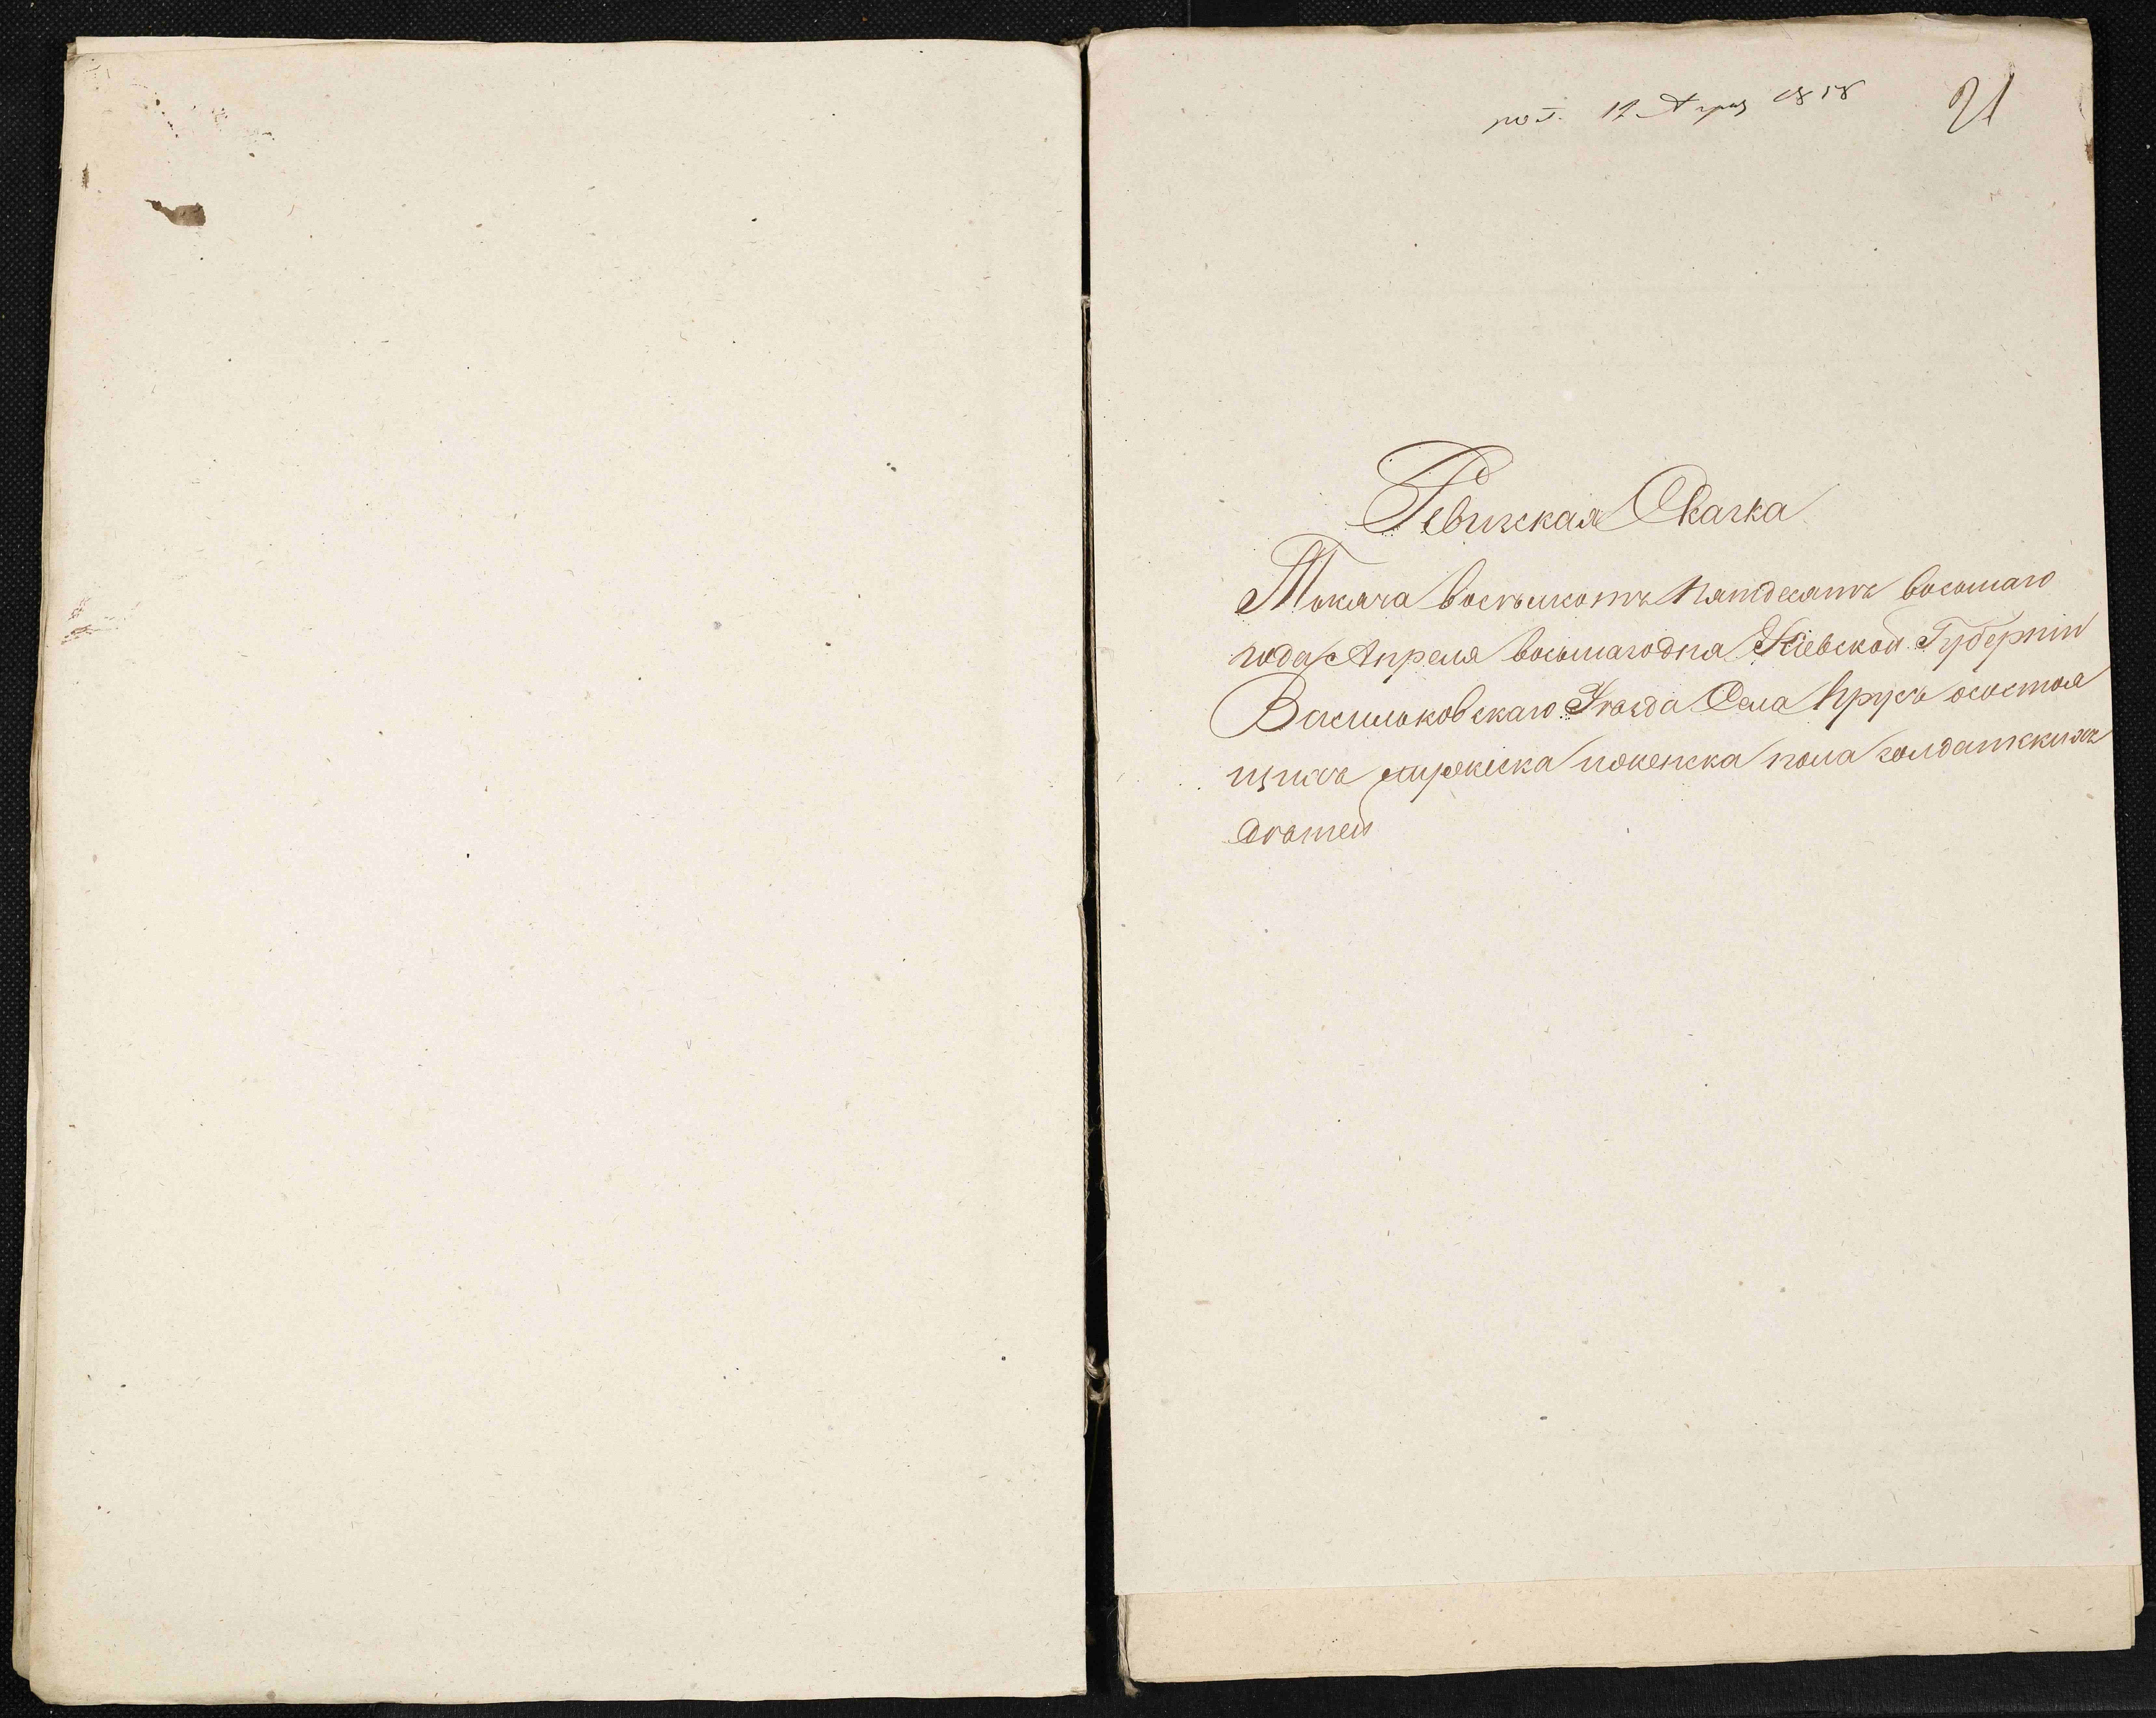 пол. 12 Апръ 1858
21
Ревизская Сказка
Тысяча восѣмсотъ пятдесятъ восьмаго
года Апреля восьмагодня Кіевской Губерніи
Васильковскаго Уѣзда Села осостоя
щихъ мужеска иженска пола солдатскихъ
дѣтей